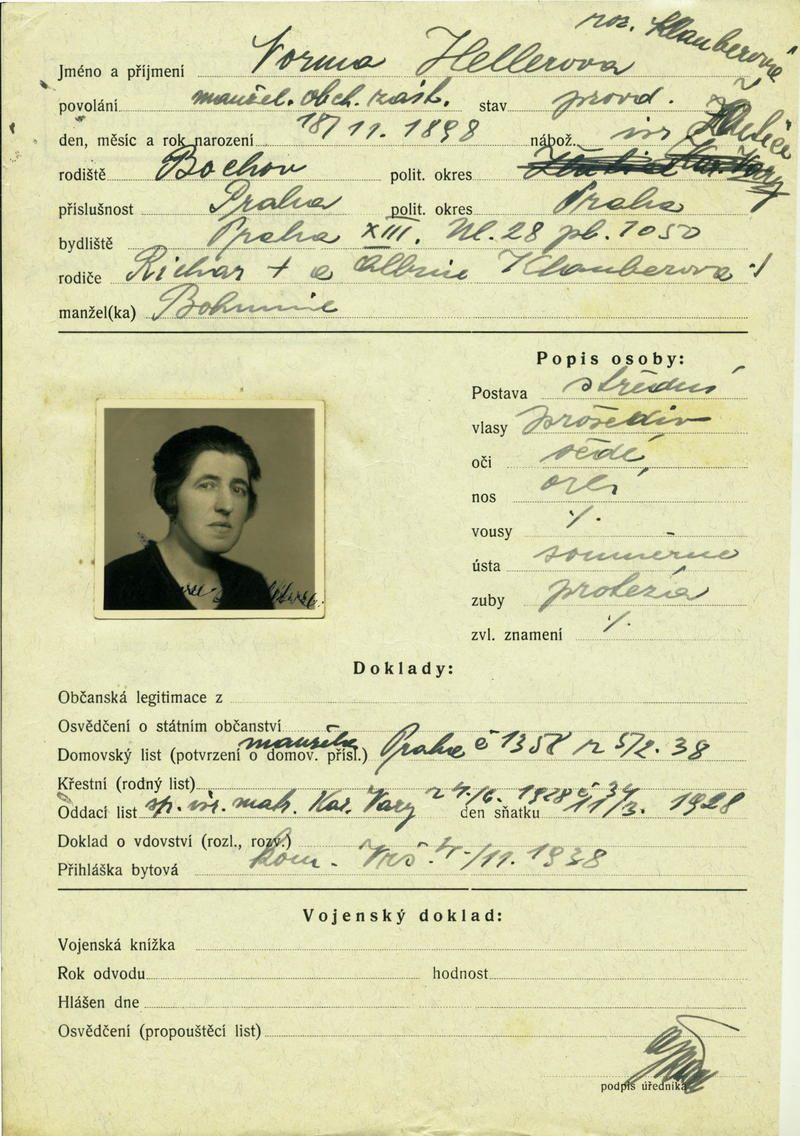 roz. Klauberová
Jméno a příjmení Norma Hellerova
povolání manžel. obch. zást. stav provd.
den, měsíc a rok narození 18/11. 1898 nábož. isr Žlutice
rodiště Bochov polit. okres Kar. Vary
příslušnost Praha polit. okres Praha
bydliště Praha XIII. Ul. 28 pl. 1050
rodiče Richar + a Albine Klauberova
manžel(ka) Bohumil
Popis osoby:
Postava střední
vlasy prošediv
oči šedé
nos orlí
vousy ./.
ústa souměrné
zuby proteza
zvl. znamení ./.
Doklady:
Občanská legitimace z
Osvědčení o státním občanství
manžela
Domovský list (potvrzení o domov. přísl.) Praha č 1358 z 5/2. 38
Křestní (rodný list)
Oddací list isr. mat. Kar. Vary 1928 č 34 den sňatku 11/3. 1928
Doklad o vdovství (rozl., rozv.)
Přihláška bytová kom. Vrš. 4/11. 1938
Vojenský doklad:
Vojenská knížka
Rok odvodu hodnost
Hlášen dne
Osvědčení (propouštěcí list)
podpis úředníka